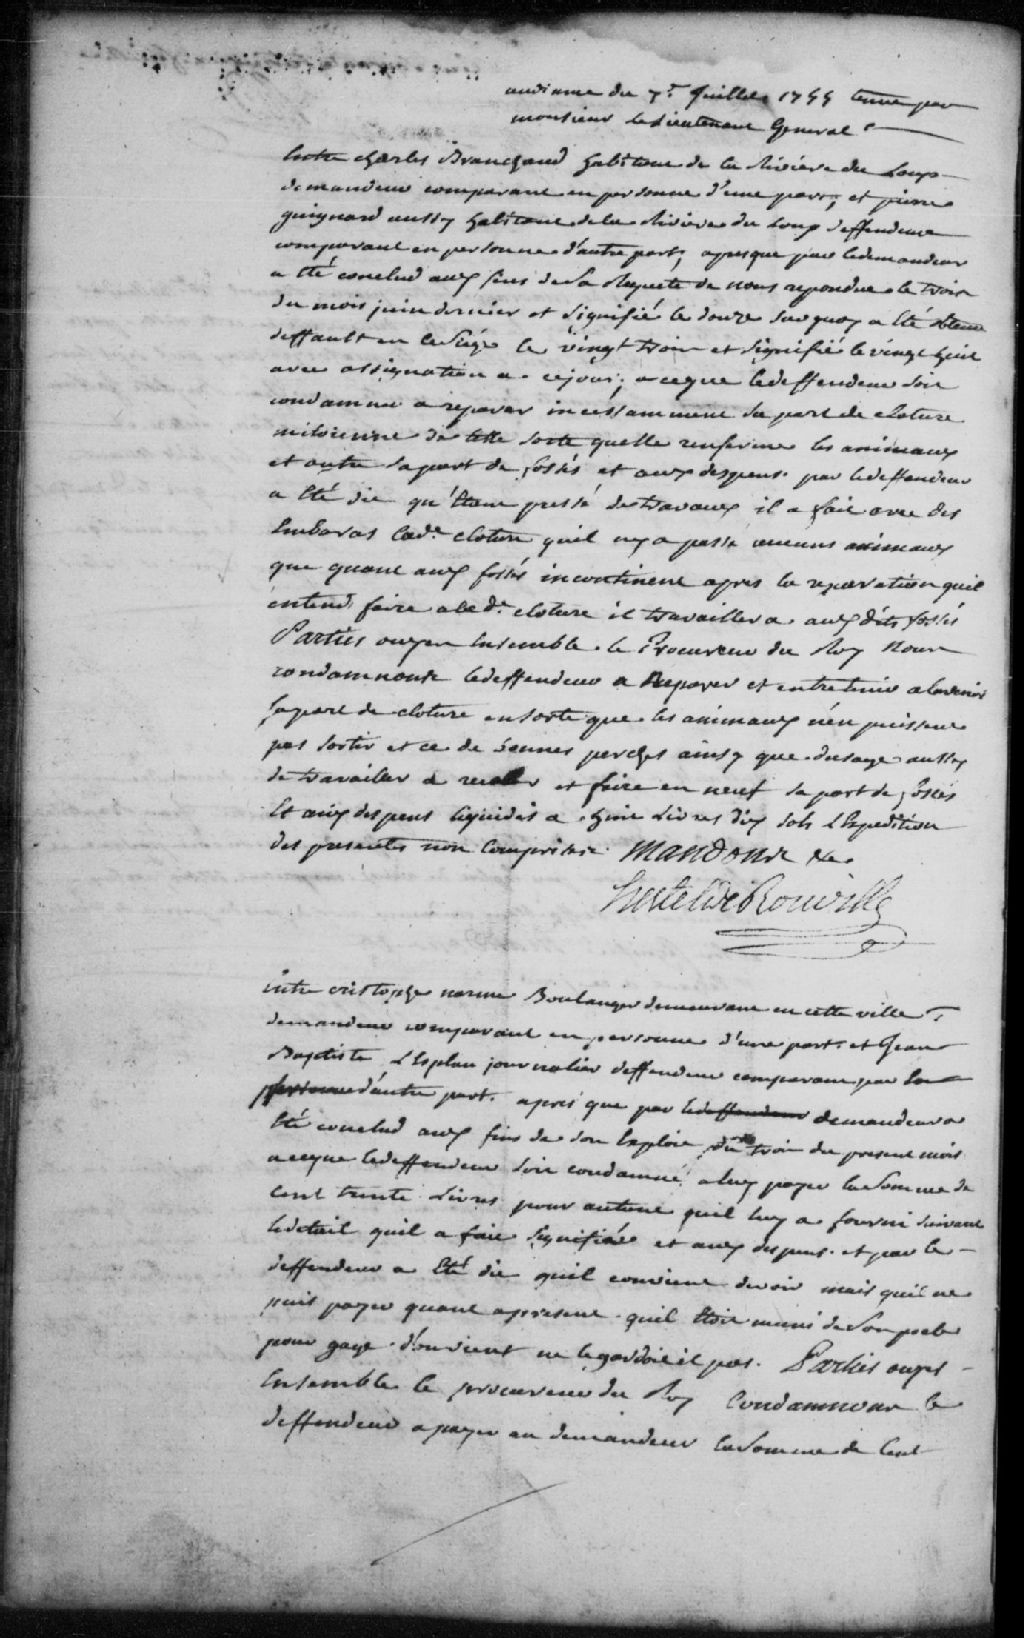 audiance du 7e. Juillet 1755 tenue par
monsieur le Lieutenant General
Entre charles Branchaud habitant de la Riviere du Loup
demandeur comparant en personne d'une part, et pierre
guignard aussy habitant de la Riviere du Loup deffendeur
comparant en personne d'autre part, apres que par le demandeur
a été conclud aux fins de sa Requete de nous repondue le trois
du mois juin dernier et signifié le douze sur quoy a été obtenu
deffault en le siege le vingt trois et signifié le vingt huit
avec assignation a ce jour, a ce que le deffendeur soit
condamné a reparer incessamment sa part de cloture
mitoienne de telle sorte quelle renferme les animaux
et outre sa part de fossés et aux despens. par le deffendeur
a été dit qu'étant pressé de travaux il a fait avec des
Embaras lad.e cloture quil ny a passé aucuns animaux
que quant aux fossés incontinent apres la reparation quil
entend faire a lad.e cloture il travaillera aux dits fossés
Parties ouyes Ensemble le Procureur du Roy Nous
condamnons le deffendeur a Reparer et entretenir a lavenir
sa part de cloture en sorte que les animaux n'en puissent
pas sortir et ce de bonnes perches ainsy que dusage aussy
de travailler a et faire en neuf sa part de fossés
Et aux despens liquidés a huit Livres dix sols L'Expedition
des presentes non Comprises. Mandons &c.
Hertel de Rouville
Entre cristophe Boulanger demeurant en cette ville
demandeur comparant en personne d'une part. et Jean
Baptiste Lesplan journalier deffendeur comparant par sa
personne d'autre part. apres que par le deffendeur demandeur a
été conclud aux fins de son Exploit du trois du present mois
a ce que le deffendeur soit condamné a luy payer la somme de
cent trente Livres pour autant quil luy a fourni suivant
le detail quil a fait signifier et aux despens. et par le
deffendeur a été dit quil convient devoir mais quil ne
puis payer quant a present quil étoit muni de son
pour gage ne le gardoit il pas. Parties ouyes
Ensemble le procureur du Roy Condamnons le
deffendeur a payer au demandeur la somme de Cent